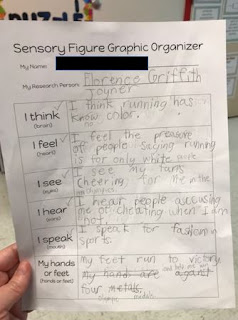 Sensory Figure Graphic Organizer
My Name:
My Research Person: Florence Griffith
Joyner
I think
(brain)
I think running has
know color.
no
I feel
(heart)
I feel the pressure
of people saying running
is for only white
I see
(eyes)
I see my fans
Cheering for me in the
I hear
(ears)
I hear people accusing
me of cheating when I am
not
I speak
(mouth)
I speak for fashion in
sports.
My hands
or feet
(hands or feet)
My feet run to victory
my hands are
four metals.
medals